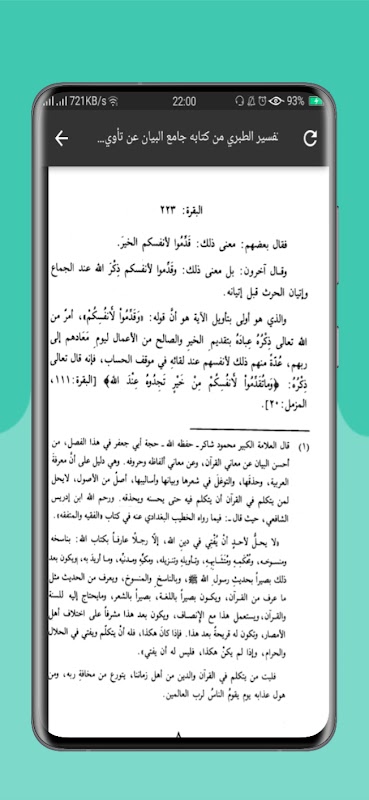 721KB/s 22:00 93%
تفسير الطبري من كتابه جامع البيان عن تأوي...
البقرة: ٢٢٣
فقال بعضهم: معنى ذلك: قَدِّمُوا لأنفسكم الخيرَ.
وقـال آخرون: بل معنى ذلك: وقَدِّموا لأنفسكم ذِكْرَ الله عند الجماع
وإتيان الحرث قبل إتيانه.
والذي هو أولى بتأويل الآية هو أنَّ قوله: «وَقَدِّمُواْ لأَنفُسِكُمْ»، أمرٌ من
الله تعالى ذِكْرُهُ عِبادَهُ بتقديم الخير والصالح من الأعمال ليوم مَعَادهم إلى
ربهم، عُدَّةً منهم ذلك لأنفسهم عند لقائه في موقف الحساب، فإنه قال تعالى
ذِكْرُهُ: ﴿وَمَا تُقَدِّمُواْ لأَنفُسِكُمْ مِنْ خَيْرٍ تَجِدُوهُ عِنْدَ الله﴾ [البقرة: ١١١،
المزمل: ٢٠].
(١) قال العلامة الكبير محمود شاكر ـ حفظه الله ـ حجة أبي جعفر في هذا الفصل، من
أحسن البيان عن معاني القرآن، وعن معاني ألفاظه وحروفه. وهي دليل على أنَّ معرفةَ
العربية، وحذقَها، والتوغلَ في شعرها وبيانها وأساليبها، أصلٌ من الأصول، لايحل
لمن يتكلم في القرآن أن يتكلم فيه حتى يحسنه ويحذقه. ورحم الله ابن إدريس
الشافعي، حيث قال ـ: فيما رواه الخطيب البغدادي عنه في كتاب «الفقيه والمتفقه».
«لا يحـلُّ لأحـدٍ أنْ يُفْتِي في دين الله، إلَّا رجـلًا عارفـاً بكتاب الله: بناسخه
ومنسـوخـه، ومُحْكَمِهِ ومُتَشَابِهِهِ، وتـأويله وتنـزيله، ومكيِّه ومـدنيِّه، وما أريدَ به، ويكون بعد
ذلك بصيراً بحديثِ رسول الله ﷺ، وبالناسخ والمنسوخ، ويعرف من الحديث مثل
ما عرف من القـرآن، ويكـون بصيراً باللغـة، بصيراً بالشعر، ومايحتاج إليه للسنة
والقـرآن، ويستعمل هذا مع الإنصاف، ويكون بعد هذا مشرفاً على اختلاف أهل
الأمصار، وتكون له قريحةٌ بعد هذا. فإذا كان هكذا، فله أنْ يتكلَّم ويفتي في الحلال
والحرام، وإذا لم يكنْ هكذا، فليس له أن يفتي».
فليت من يتكلم في القرآن والدين من أهل زماننا، يتورع من مخافةِ ربه، ومن
هول عذابه يوم يقومُ الناسُ لرب العالمين.